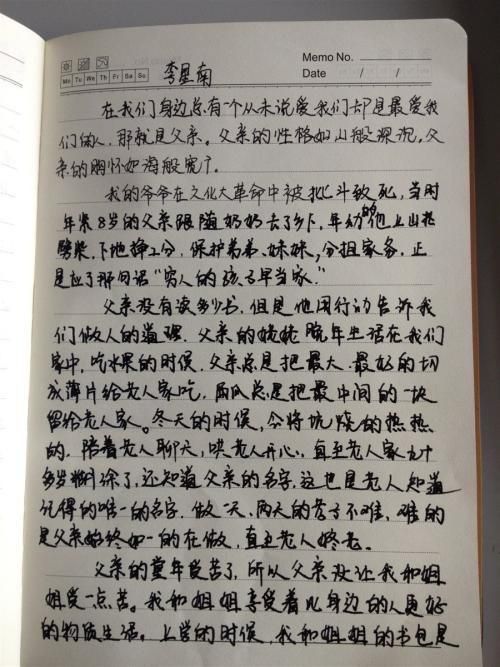 Memo No.
Mo Tu We Th Fr Sa Su
Date / /
李星南
在我们身边总有个从未说爱我们却是最爱我
们的人，那就是父亲。父亲的性格如山般深沉，父
亲的胸怀如海般宽广。
我的爷爷在文化大革命中被批斗致死，当时
年紧8岁的父亲跟随奶奶去了乡下，年幼的他上山砍
劈柴，下地挣工分，保护弟弟、妹妹，分担家务，正
是应了那句话“穷人的孩子早当家。”
父亲没有读多少书，但是他用行动告诉我
们做人的道理，父亲的姥姥晚年生活在我们
家中，吃水果的时候，父亲总是把最大、最好的切
成薄片给老人家吃，西瓜总是把最中间的一块
留给老人家。冬天的时候，会将炕烧的热热
的，陪着老人聊天，哄老人开心，直至老人家九十
多岁糊涂了，还知道父亲的名字，这也是老人知道
记得的唯一的名字，做一天、两天的孝子不难，难的
是父亲始终如一的在做，直至老人终老。
父亲的童年受苦了，所以父亲没让我和姐
姐受一点苦。我和姐姐享受着比身边的人更好
的物质生活。上学的时候，我和姐姐的书包是